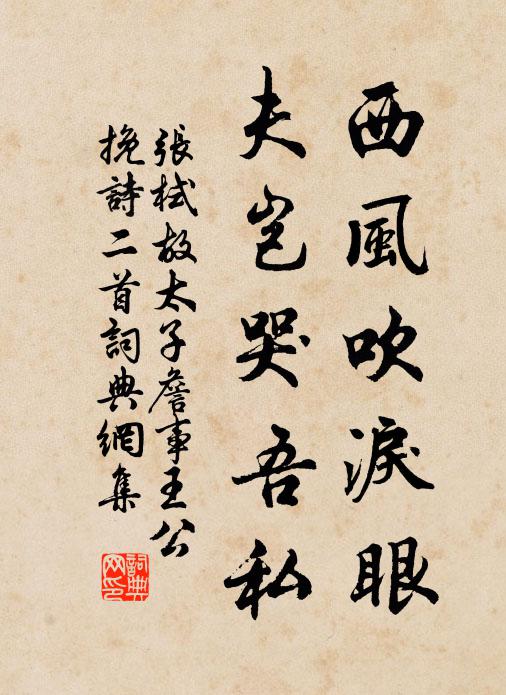 西風吹淚眼
夫豈哭吾私
張栻故太子詹事王公
挽詩二首詞典網集
詞典
网印